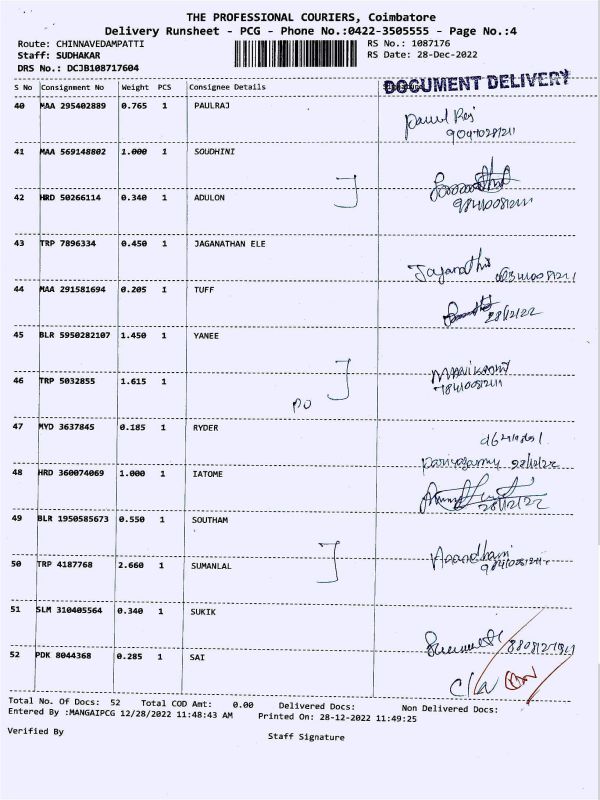 THE PROFESSIONAL COURIERS, Coimbatore
Delivery Runsheet - PCG - Phone No.:0422-3505555 - Page No.:4
Route: CHINNAVEDAMPATTI RS No.: 1087176
Staff: SUDHAKAR RS Date: 28-Dec-2022
DRS No.: DCJB108717604
DOCUMENT DELIVERY
S No Consignment No Weight PCS Consignee Details
40 MAA 295402889 0.765 1 PAULRAJ
41 MAA 569148802 1.000 1 SOUDHINI
42 HRD 50266114 0.340 1 ADULON
43 TRP 7896334 0.450 1 JAGANATHAN ELE
44 MAA 291581694 0.205 1 TUFF
28/12/22
45 BLR 5950282107 1.450 1 YANEE
46 TRP 5032855 1.615 1
PO
47 MYD 3637845 0.185 1 RYDER
48 HRD 360074069 1.000 1 IATOME
28/12/22
49 BLR 1950585673 0.550 1 SOUTHAM
50 TRP 4187768 2.660 1 SUMANLAL
51 SLM 310405564 0.340 1 SUKIK
52 PDK 8044368 0.285 1 SAI
Total No. Of Docs: 52 Total COD Amt: 0.00 Delivered Docs: Non Delivered Docs:
Entered By :MANGAIPCG 12/28/2022 11:48:43 AM Printed On: 28-12-2022 11:49:25
Verified By Staff Signature